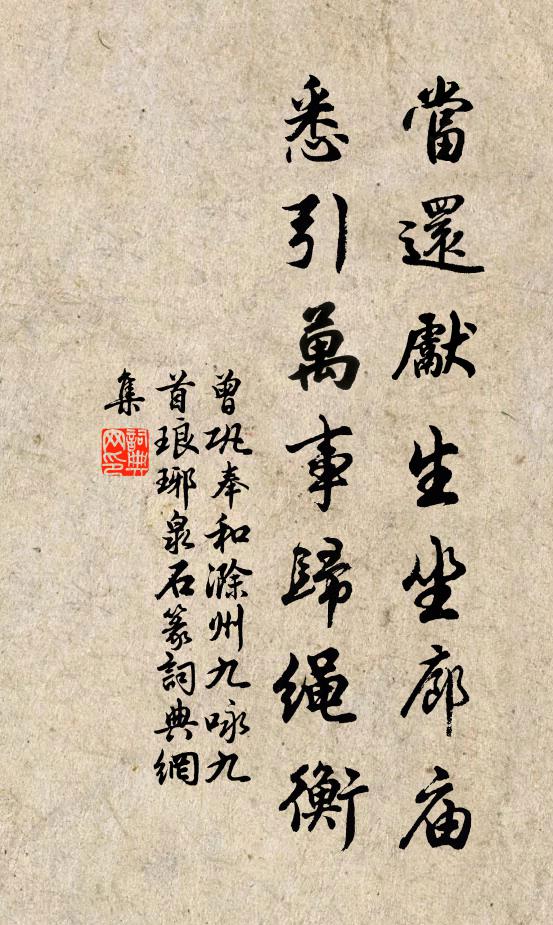 當還獻生坐廊庙
悉引萬事歸绳衡
曾巩奉和滁州九咏九
首琅琊泉石篆詞典網
集
詞典
网印